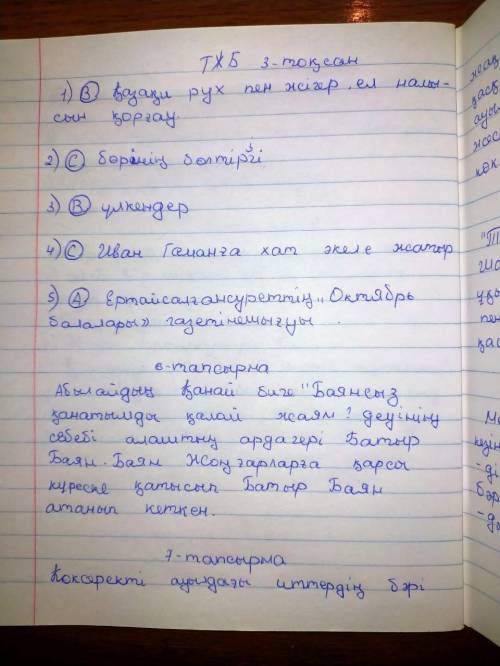 ТЖБ 3-тоқсан
1) (B) қазақи рух пен жігер, ел намы-
сын қорғау.
2) (C) бөрінің бөлтірігі
3) (B) үлкендер
4) (C) Иван Гаманға хат әкеле жатыр
5) (A) Ертайсалғансуреттің „Октябрь
балалары» газетінешығуы .
6-тапсырма
Абылайдың Қанай биге "Баянсыз
қанатымды қалай жаям? деуінің
себебі алаштың ардагері Батыр
Баян. Баян Жоңғарларға қарсы
күреске қатысып Батыр Баян
атанып кеткен.
7-тапсырма
Көксеректі ауылдағы иттердің бәрі